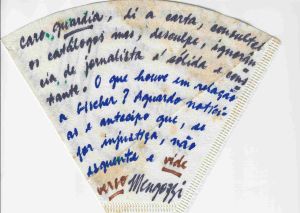 caro Guardia, li a carta, consultei
os catálogos mas, desculpe, ignorân
cia de jornalista é sólida e cons
tante. O que houve em relação
a Fischer? Aguardo notíci
as e antecipo que, se
for injustiça, não
esquente e vide
verso Mengozzi